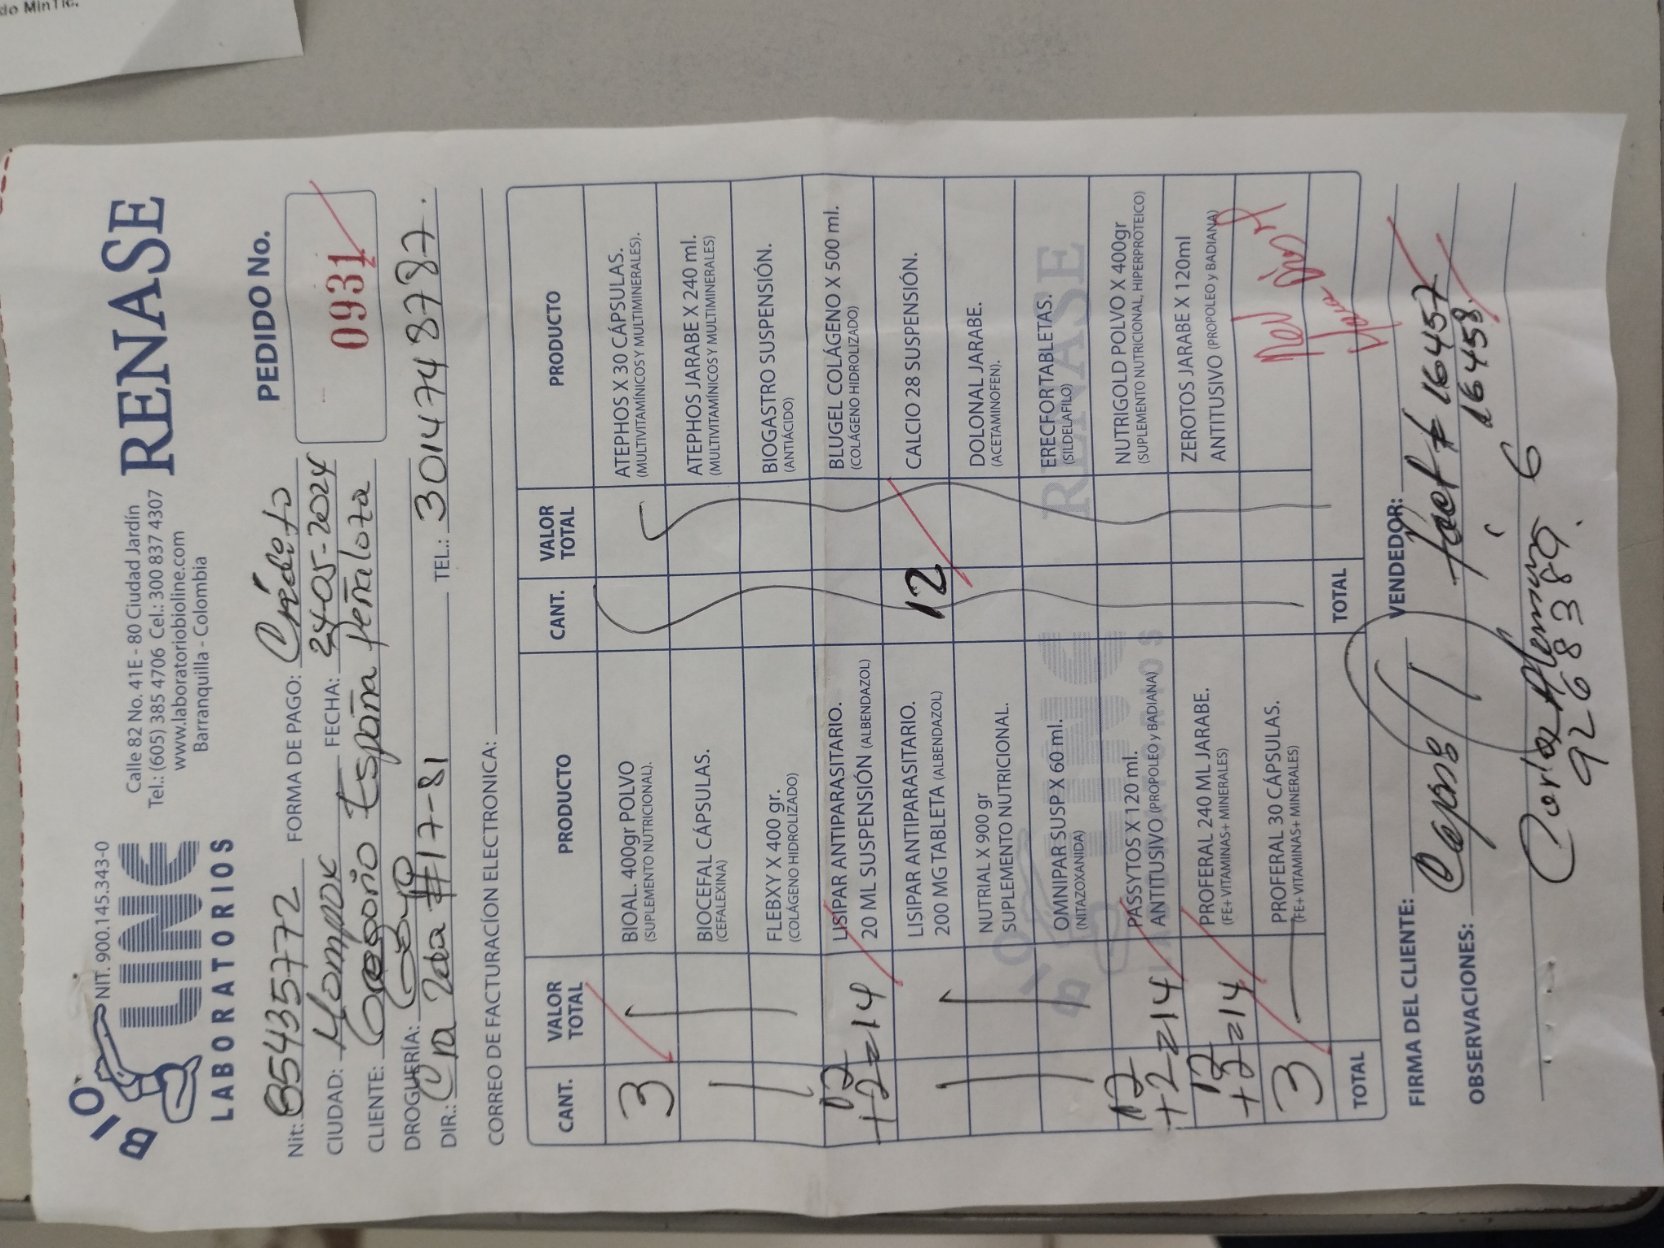 do MinTIC.
NIT. 900.145.343-0
BIO
LINE
LABORATORIOS
Calle 82 No. 41E - 80 Ciudad Jardín
Tel.: (605) 385 4706 Cel.: 300 837 4307
www.laboratoriobioline.com
Barranquilla - Colombia
RENASE
PEDIDO No.
0931
Nit: 85435772 FORMA DE PAGO: Crédito
CIUDAD: Mompox FECHA: 24-05-2024
CLIENTE: Gregorio España Peñaloza
DROGUERÍA: Goyo
DIR.: Cra 2da #17-81 TEL.: 3014748787.
CORREO DE FACTURACÍON ELECTRONICA:
CANT. VALOR TOTAL PRODUCTO CANT. VALOR TOTAL PRODUCTO
3 BIOAL. 400gr POLVO ATEPHOS X 30 CÁPSULAS.
(SUPLEMENTO NUTRICIONAL). (MULTIVITAMÍNICOS Y MULTIMINERALES).
BIOCEFAL CÁPSULAS. ATEPHOS JARABE X 240 ml.
(CEFALEXINA) (MULTIVITAMÍNICOS Y MULTIMINERALES)
FLEBXY X 400 gr. BIOGASTRO SUSPENSIÓN.
(COLÁGENO HIDROLIZADO) (ANTIÁCIDO)
12 LISIPAR ANTIPARASITARIO. BLUGEL COLÁGENO X 500 ml.
+2=14 20 ML SUSPENSIÓN (ALBENDAZOL) (COLÁGENO HIDROLIZADO)
LISIPAR ANTIPARASITARIO. 12 CALCIO 28 SUSPENSIÓN.
200 MG TABLETA (ALBENDAZOL)
NUTRIAL X 900 gr DOLONAL JARABE.
SUPLEMENTO NUTRICIONAL. (ACETAMINOFEN).
OMNIPAR SUSP X 60 ml. ERECFORTABLETAS.
(NITAZOXANIDA) (SILDELAFILO)
12 PASSYTOS X 120 ml. NUTRIGOLD POLVO X 400gr
+2=14 ANTITUSIVO (PROPOLEO y BADIANA) (SUPLEMENTO NUTRICIONAL, HIPERPROTEICO)
12 PROFERAL 240 ML JARABE. ZEROTOS JARABE X 120ml
+2=14 (FE+ VITAMINAS+ MINERALES) ANTITUSIVO (PROPOLEO y BADIANA)
3 PROFERAL 30 CÁPSULAS.
(FE+ VITAMINAS+ MINERALES)
TOTAL TOTAL
FIRMA DEL CLIENTE: VENDEDOR:
fact # 16457
16458
OBSERVACIONES:
Carlos
9268389.